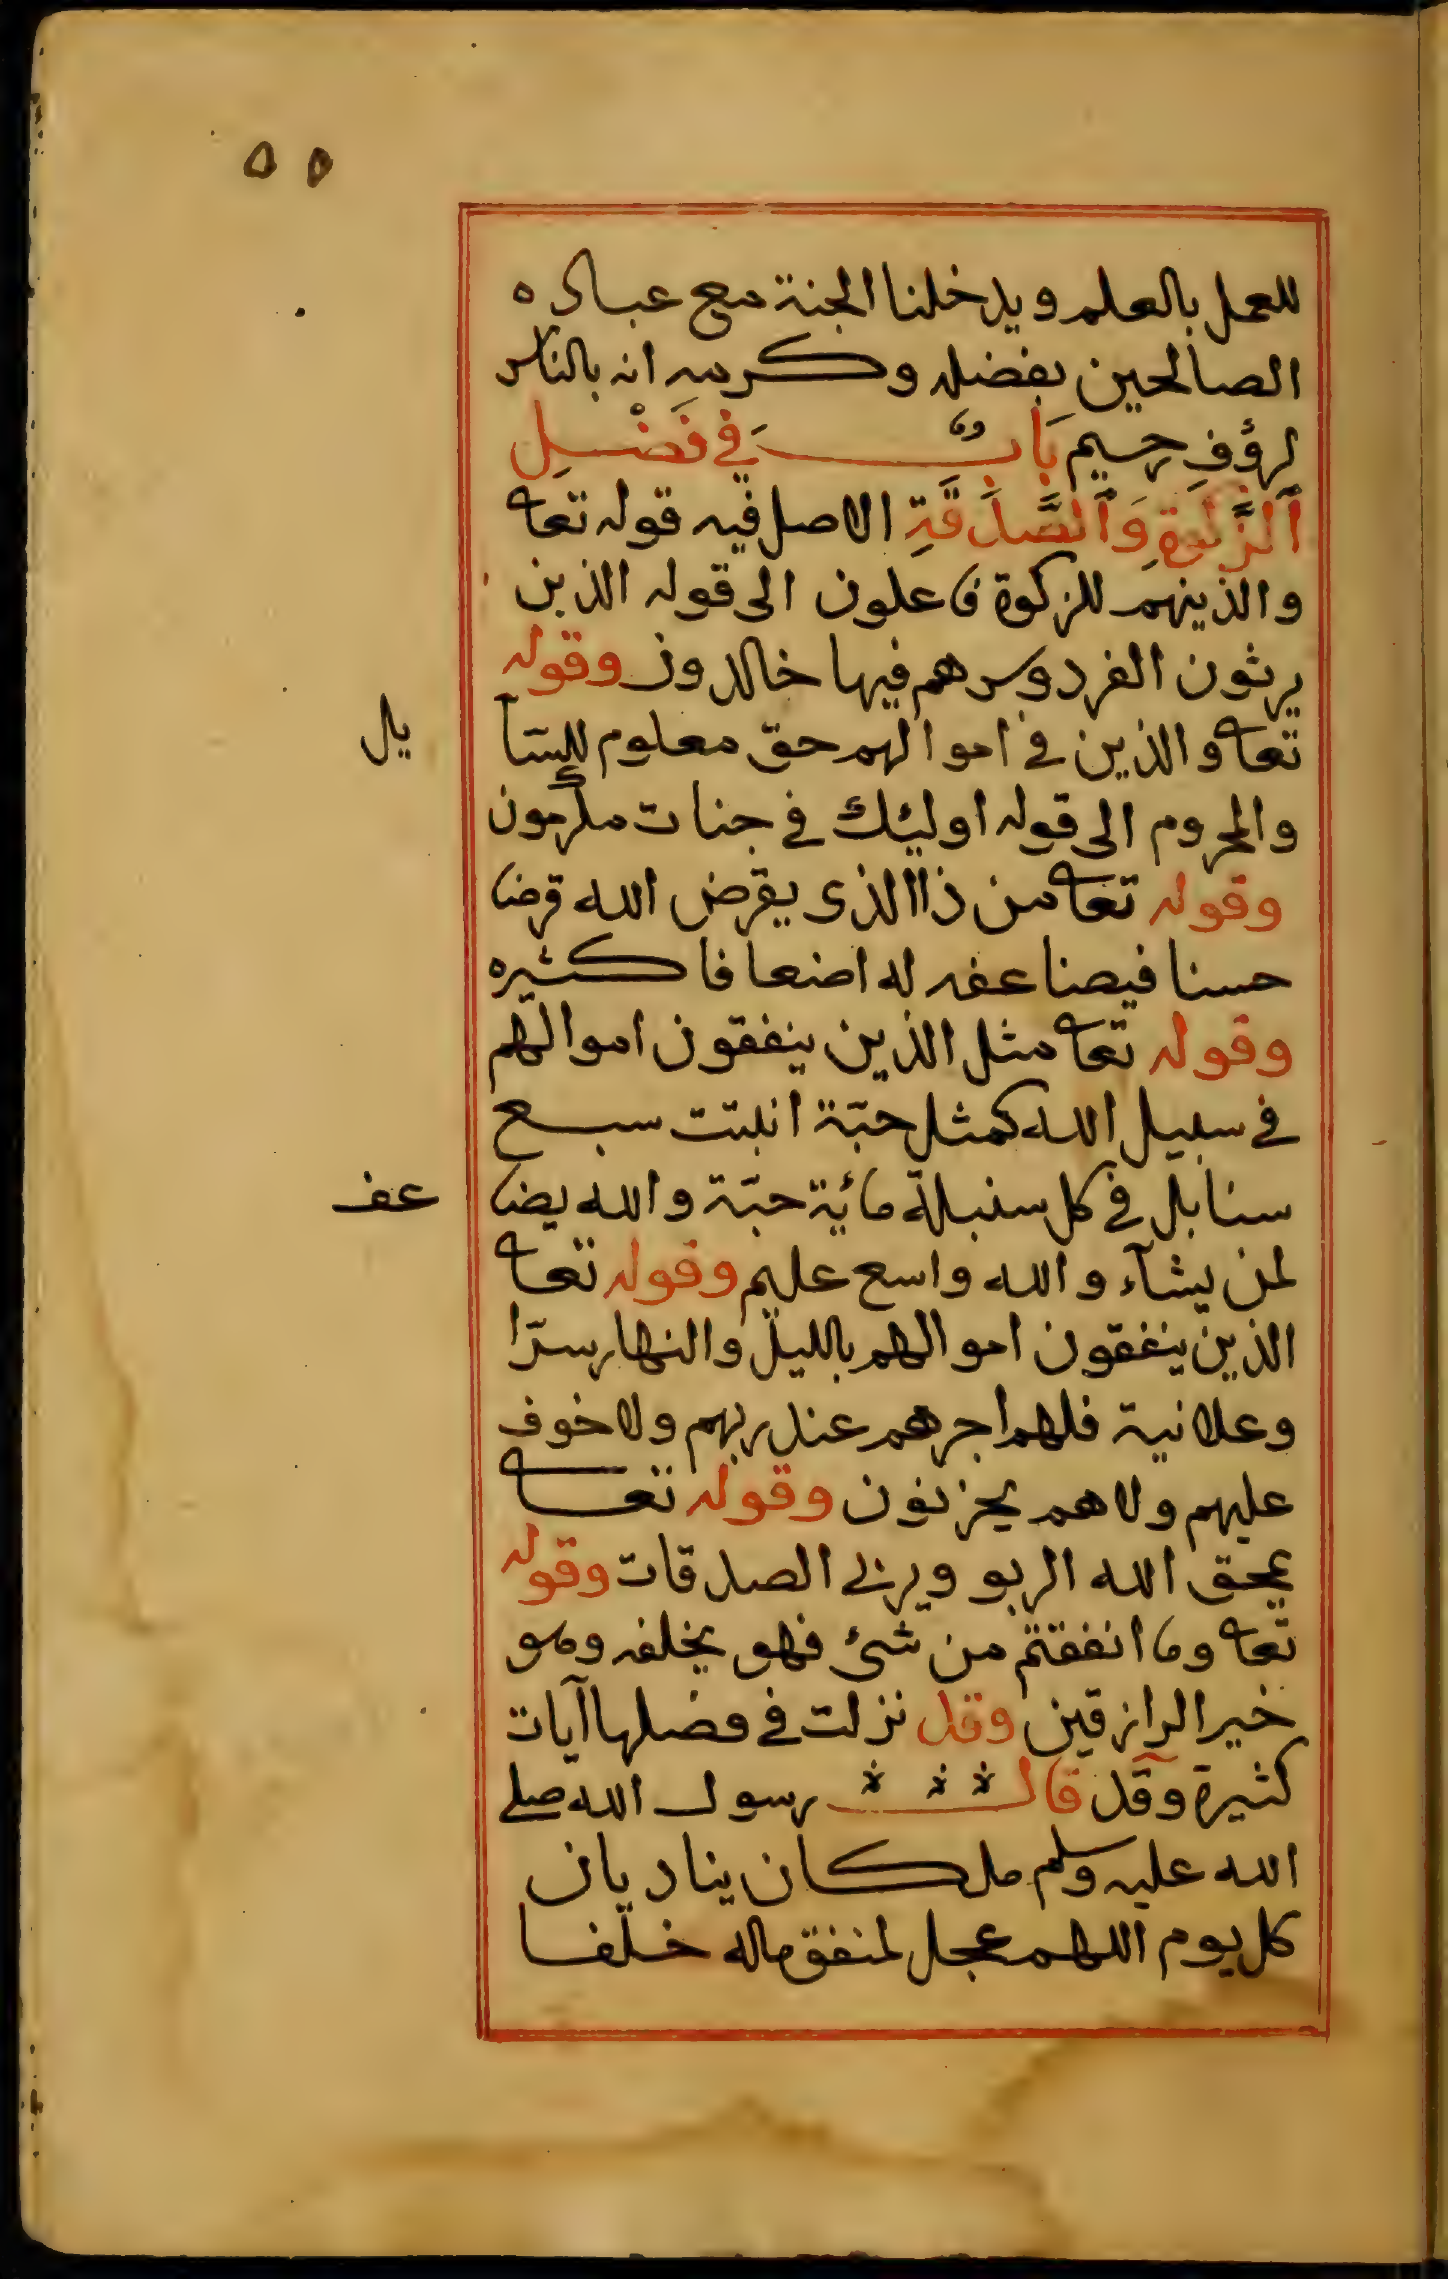 ٥٥
للعمل بالعلم ويدخلنا الجنة مع عباده
الصالحين بفضله وكرمه انه بالناس
لرؤف رحيم بَابٌ في فَضْلِ
ٱلزَّكوةِ وَٱلصَّدَقَةِ الاصل فيه قوله تعا
والذينهم للزكوة فاعلون الى قوله الذين
يرثون الفردوس هم فيها خالدون وقوله
تعا والذين في اموالهم حق معلوم للسآ
يل
والمحروم الى قوله اوليئك في جنات مكرمون
وقوله تعا من ذاالذى يقرض الله قرضا
حسنا فيضاعفه له اضعافا كثيره
وقوله تعا مثل الذين ينفقون اموالهم
في سبيل الله كمثل حبّة انبتت سبع
سنابل في كل سنبلة مائة حبّة والله يضا
عف
لمن يشآء والله واسع عليم وقوله تعا
الذين ينفقون اموالهم بالليل والنهار سرّا
وعلانية فلهم اجرهم عند ربهم ولا خوف
عليهم ولا هم يحزنون وقوله تعا
يمحق الله الربو ويربي الصدقات وقوله
تعا وما انفقتم من شئ فهو يخلفه وهو
خير الرازقين وقد نزلت في فضلها آيات
كثيرة وقد قال رسول الله صلي
الله عليه وسلم ملكان يناديان
كل يوم اللهم عجل لمنفق ماله خلفا